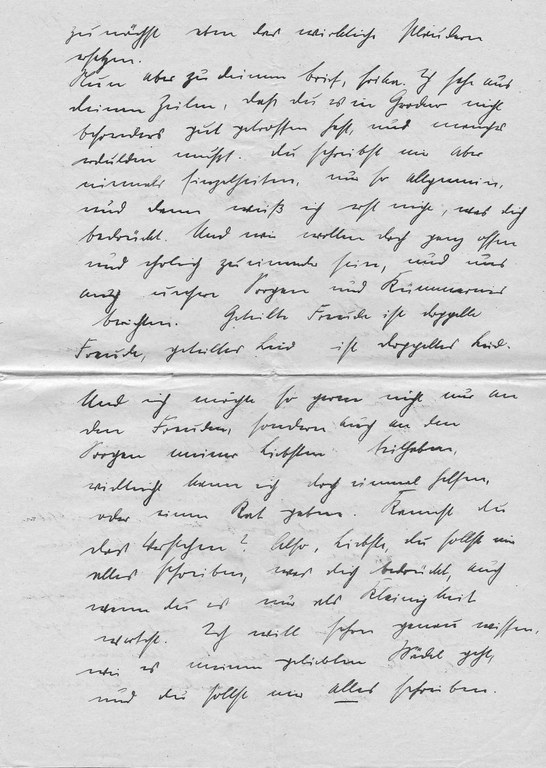 zunächst eben das wirkliche Plaudern
ersetzen.
Nun aber zu deinem Brief, Erika. Ich sehe aus
deinen Zeilen, daß du es in nicht
besonders gut getroffen hast, und manches
erdulden mußt. Du schreibst mir aber
niemals Einzelheiten, nur so allgemein,
und dann weiß ich erst nicht, was dich
bedrückt. Und wir wollen doch ganz offen
und ehrlich zueinander sein, und uns
auch unsere Sorgen und Kümmernisse
berichten. Geteilte Freude ist doppelte
Freude, geteiltes Leid ist doppeltes Leid.
Und ich möchte so gerne nicht nur an
den Freuden, sondern auch an den
Sorgen meiner Liebsten teilhaben,
vielleicht kann ich doch einmal helfen,
oder einen Rat geben. Kannst du
das verstehen? Also, Liebste, du sollst mir
alles schreiben, was dich bedrückt, auch
wenn du es nur als Kleinigkeit
Ich will schon genau wissen,
wie es meinem geliebten Mädel geht,
und du sollst mir alles schreiben.